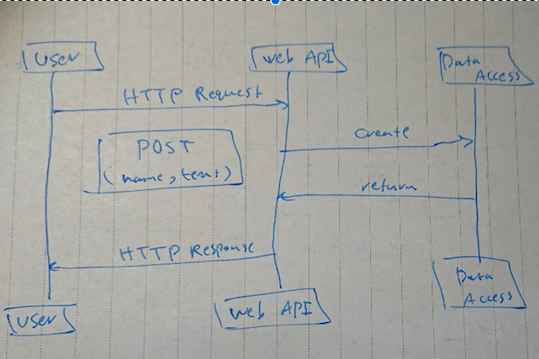 User
Web API
Data
Access
HTTP Request
Create
POST
(name, text)
return
HTTP Response
User
Web API
Data
Access